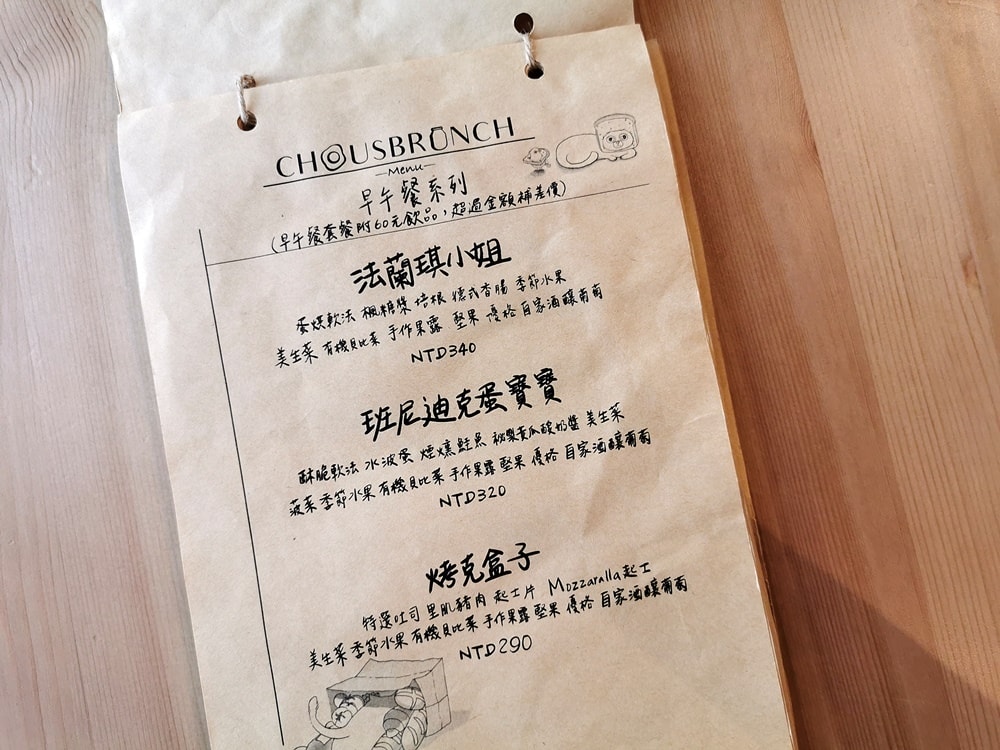 CHOUSBRUNCH
Menu
早午餐系列
(早午餐套餐附60元飲品,超過金額補差價)
法蘭琪小姐
蛋煤軟法 楓糖漿 培根 德式香腸 季節水果
美生菜 有機貝比菜 手作果露 堅果 優格 自家酒釀葡萄
NTD340
班尼迪克蛋寶寶
酥脆軟法 水波蛋 煙燻鮭魚 祕製黃瓜酸奶醬 美生菜
菠菜 季節水果 有機貝比菜 手作果露 堅果 優格 自家酒釀葡萄
NTD320
烤克盒子
特選吐司 里肌豬肉 起士片 Mozzaralla起士
美生菜 季節水果 有機貝比菜 手作果露 堅果 優格 自家酒釀葡萄
NTD290